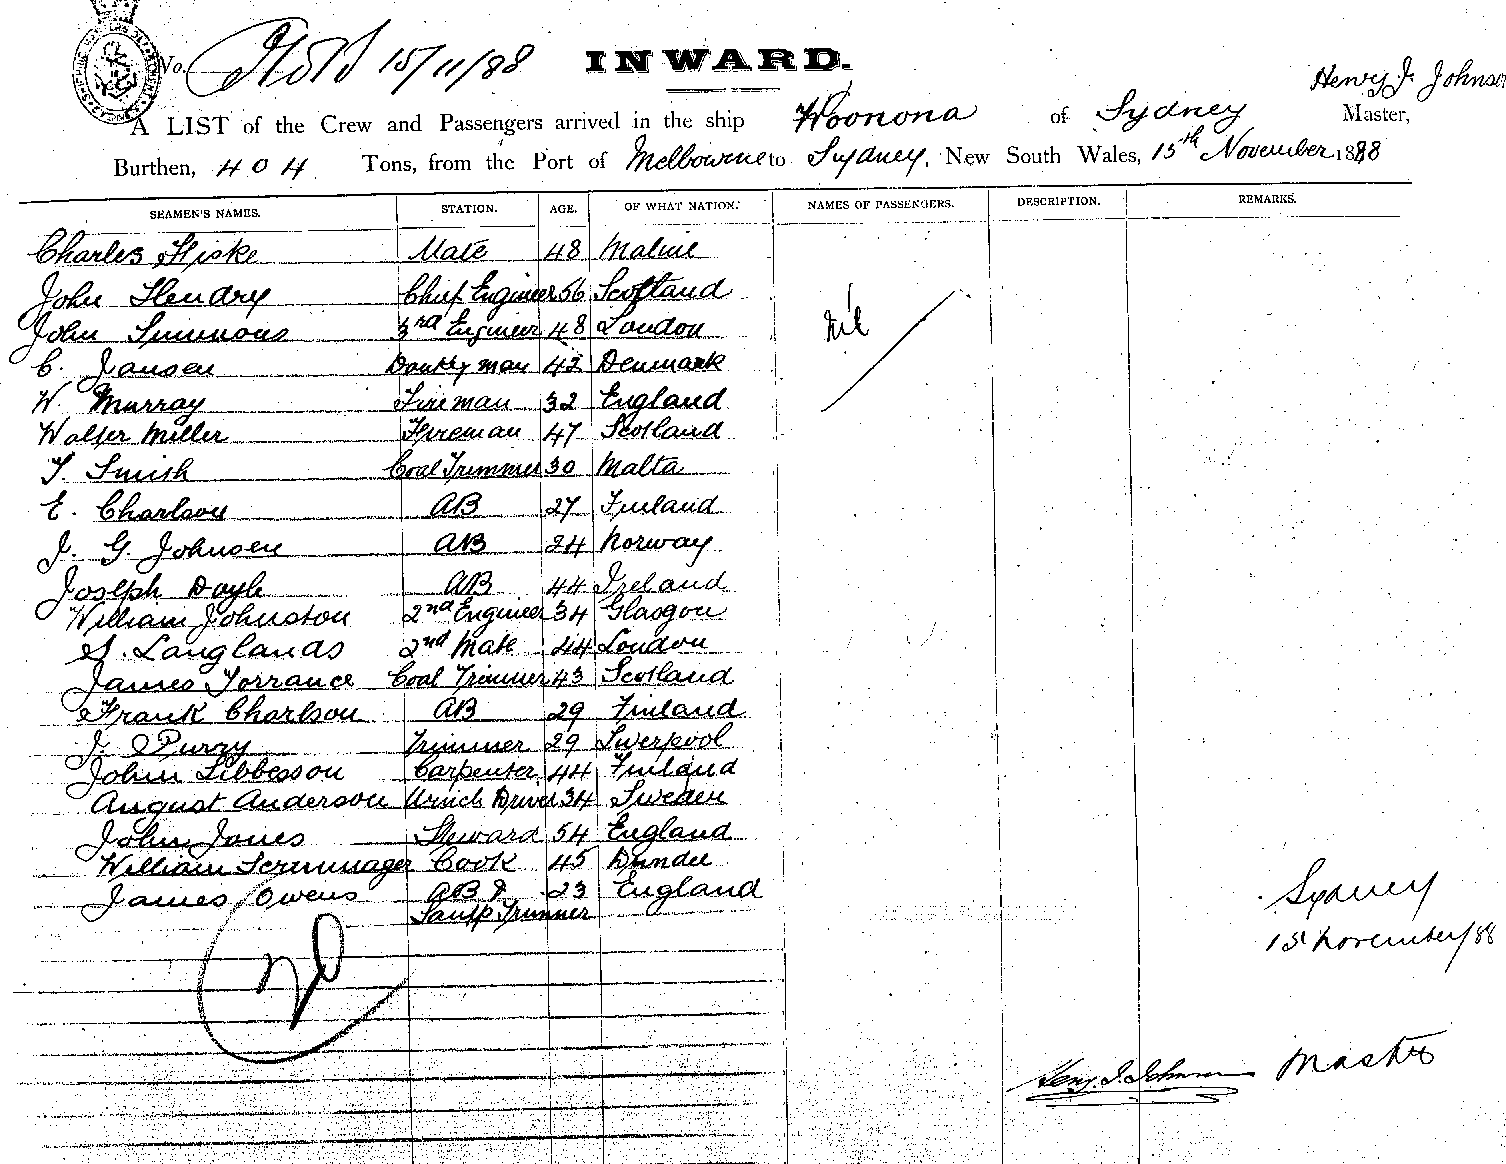 No. 15/11/88 INWARD.
Henry J. Johnson
A LIST of the Crew and Passengers arrived in the ship Woonona of Sydney Master,
Burthen, 404 Tons, from the Port of Melbourne to Sydney, New South Wales, 15th November 1888
SEAMEN'S NAMES. STATION. AGE. OF WHAT NATION. NAMES OF PASSENGERS. DESCRIPTION. REMARKS.
Charles Mate 48
John Hendry Chief Engineer 56 Scotland
nil
John Simmons 3rd Engineer 48 London
C. Jansen Donkey man 42 Denmark
W. Murray Fireman 32 England
Walter Miller Fireman 47 Scotland
T. Smith Coal Trimmer 30 Malta
E. Charlson AB 27 Finland
J. G. Johnsen AB 24 Norway
Joseph Doyle AB 44 Ireland
William Johnston 2nd Engineer 34 Glasgow
Langlands 2nd Mate 44 London
James Torrance Coal Trimmer 43 Scotland
Frank Charlson AB 29 Finland
J. Trimmer 29 Liverpool
John Carpenter 44 Finland
August Anderson Winch Driver 34 Sweden
John Jones Steward 54 England
William Scrimmager Cook 45 Dundee
James Owens AB & 23 England
Lamp Trimmer
Sydney
15 November/88
Henry J. Johnson Master